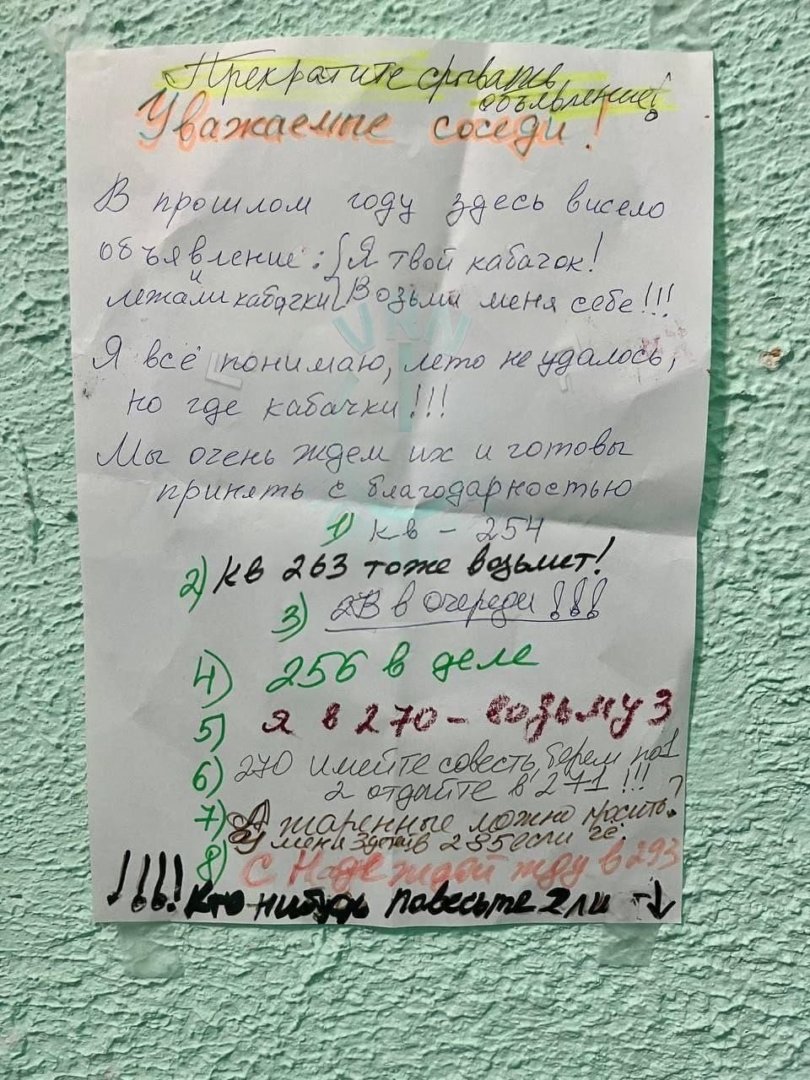 Прекратите срывать
объявление!
Уважаемые соседи!
В прошлом году здесь висело
объявление: Я твой кабачок!
и
лежали кабачки Возьми меня себе!!!
Я всё понимаю, лето не удалось,
но где кабачки!!!
Мы очень ждем их и готовы
принять с благодарностью
1) кв - 254
2) кв 263 тоже возьмет!
3) 2В в очереди!!!
4) 256 в деле
5) Я в 270 - возьму 3
6) 270 имейте совесть, берем по 1
2 отдайте в 271!!!
7) А жаренные можно просить?
У меня в 235 если чё.
8) С Надеждой жду в 293
!!!! Кто нибудь повесьте 2 ли ↓